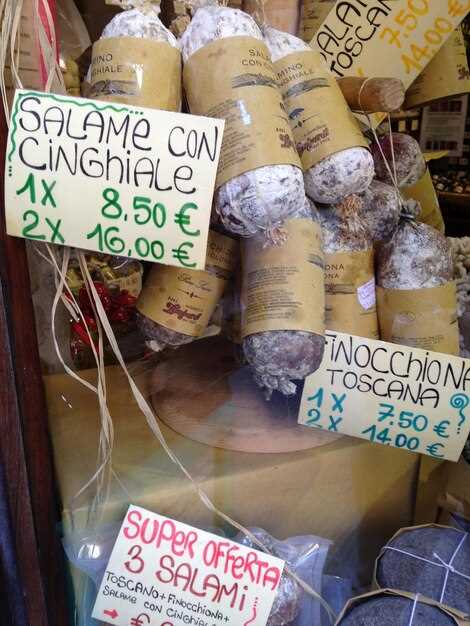 SALAME
TOSCANO
7.50
14.00
SALAME CON
CINGHIALE
1X 8.50 €
2X 16,00 €
CINGHIALE
FINOCCHIONA
TOSCANA
1X 7.50 €
2X 14.00 €
SUPER OFFERTA
3 SALAMI
TOSCANO + FINOCCHIONA +
SALAME CON CINGHIALE